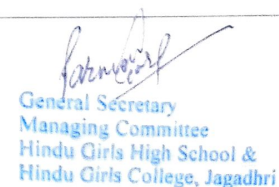 General Secretary
Managing Committee
Hindu Girls High School &
Hindu Girls College, Jagadhri